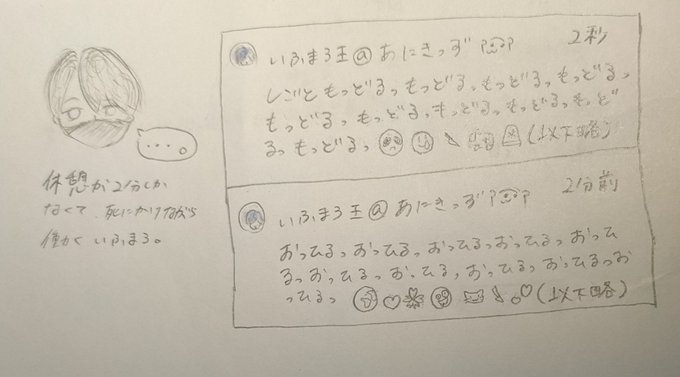 ...。
休憩が21分しか
なくて、死にかけながら
働くいふまろ。
いふまろ王@あにきっず 2秒
しごともっどるっもっどるっもっどるっもっどるっ
もっどるっもっどるっもっどるっもっどるっもっど
るっもっどるっ (以下略)
いふまろ王@あにきっず 21分前
おっひるっおっひるっおっひるっおっひるっおっひ
るっおっひるっおっひるっおっひるっおっひるっお
っひるっ (以下略)